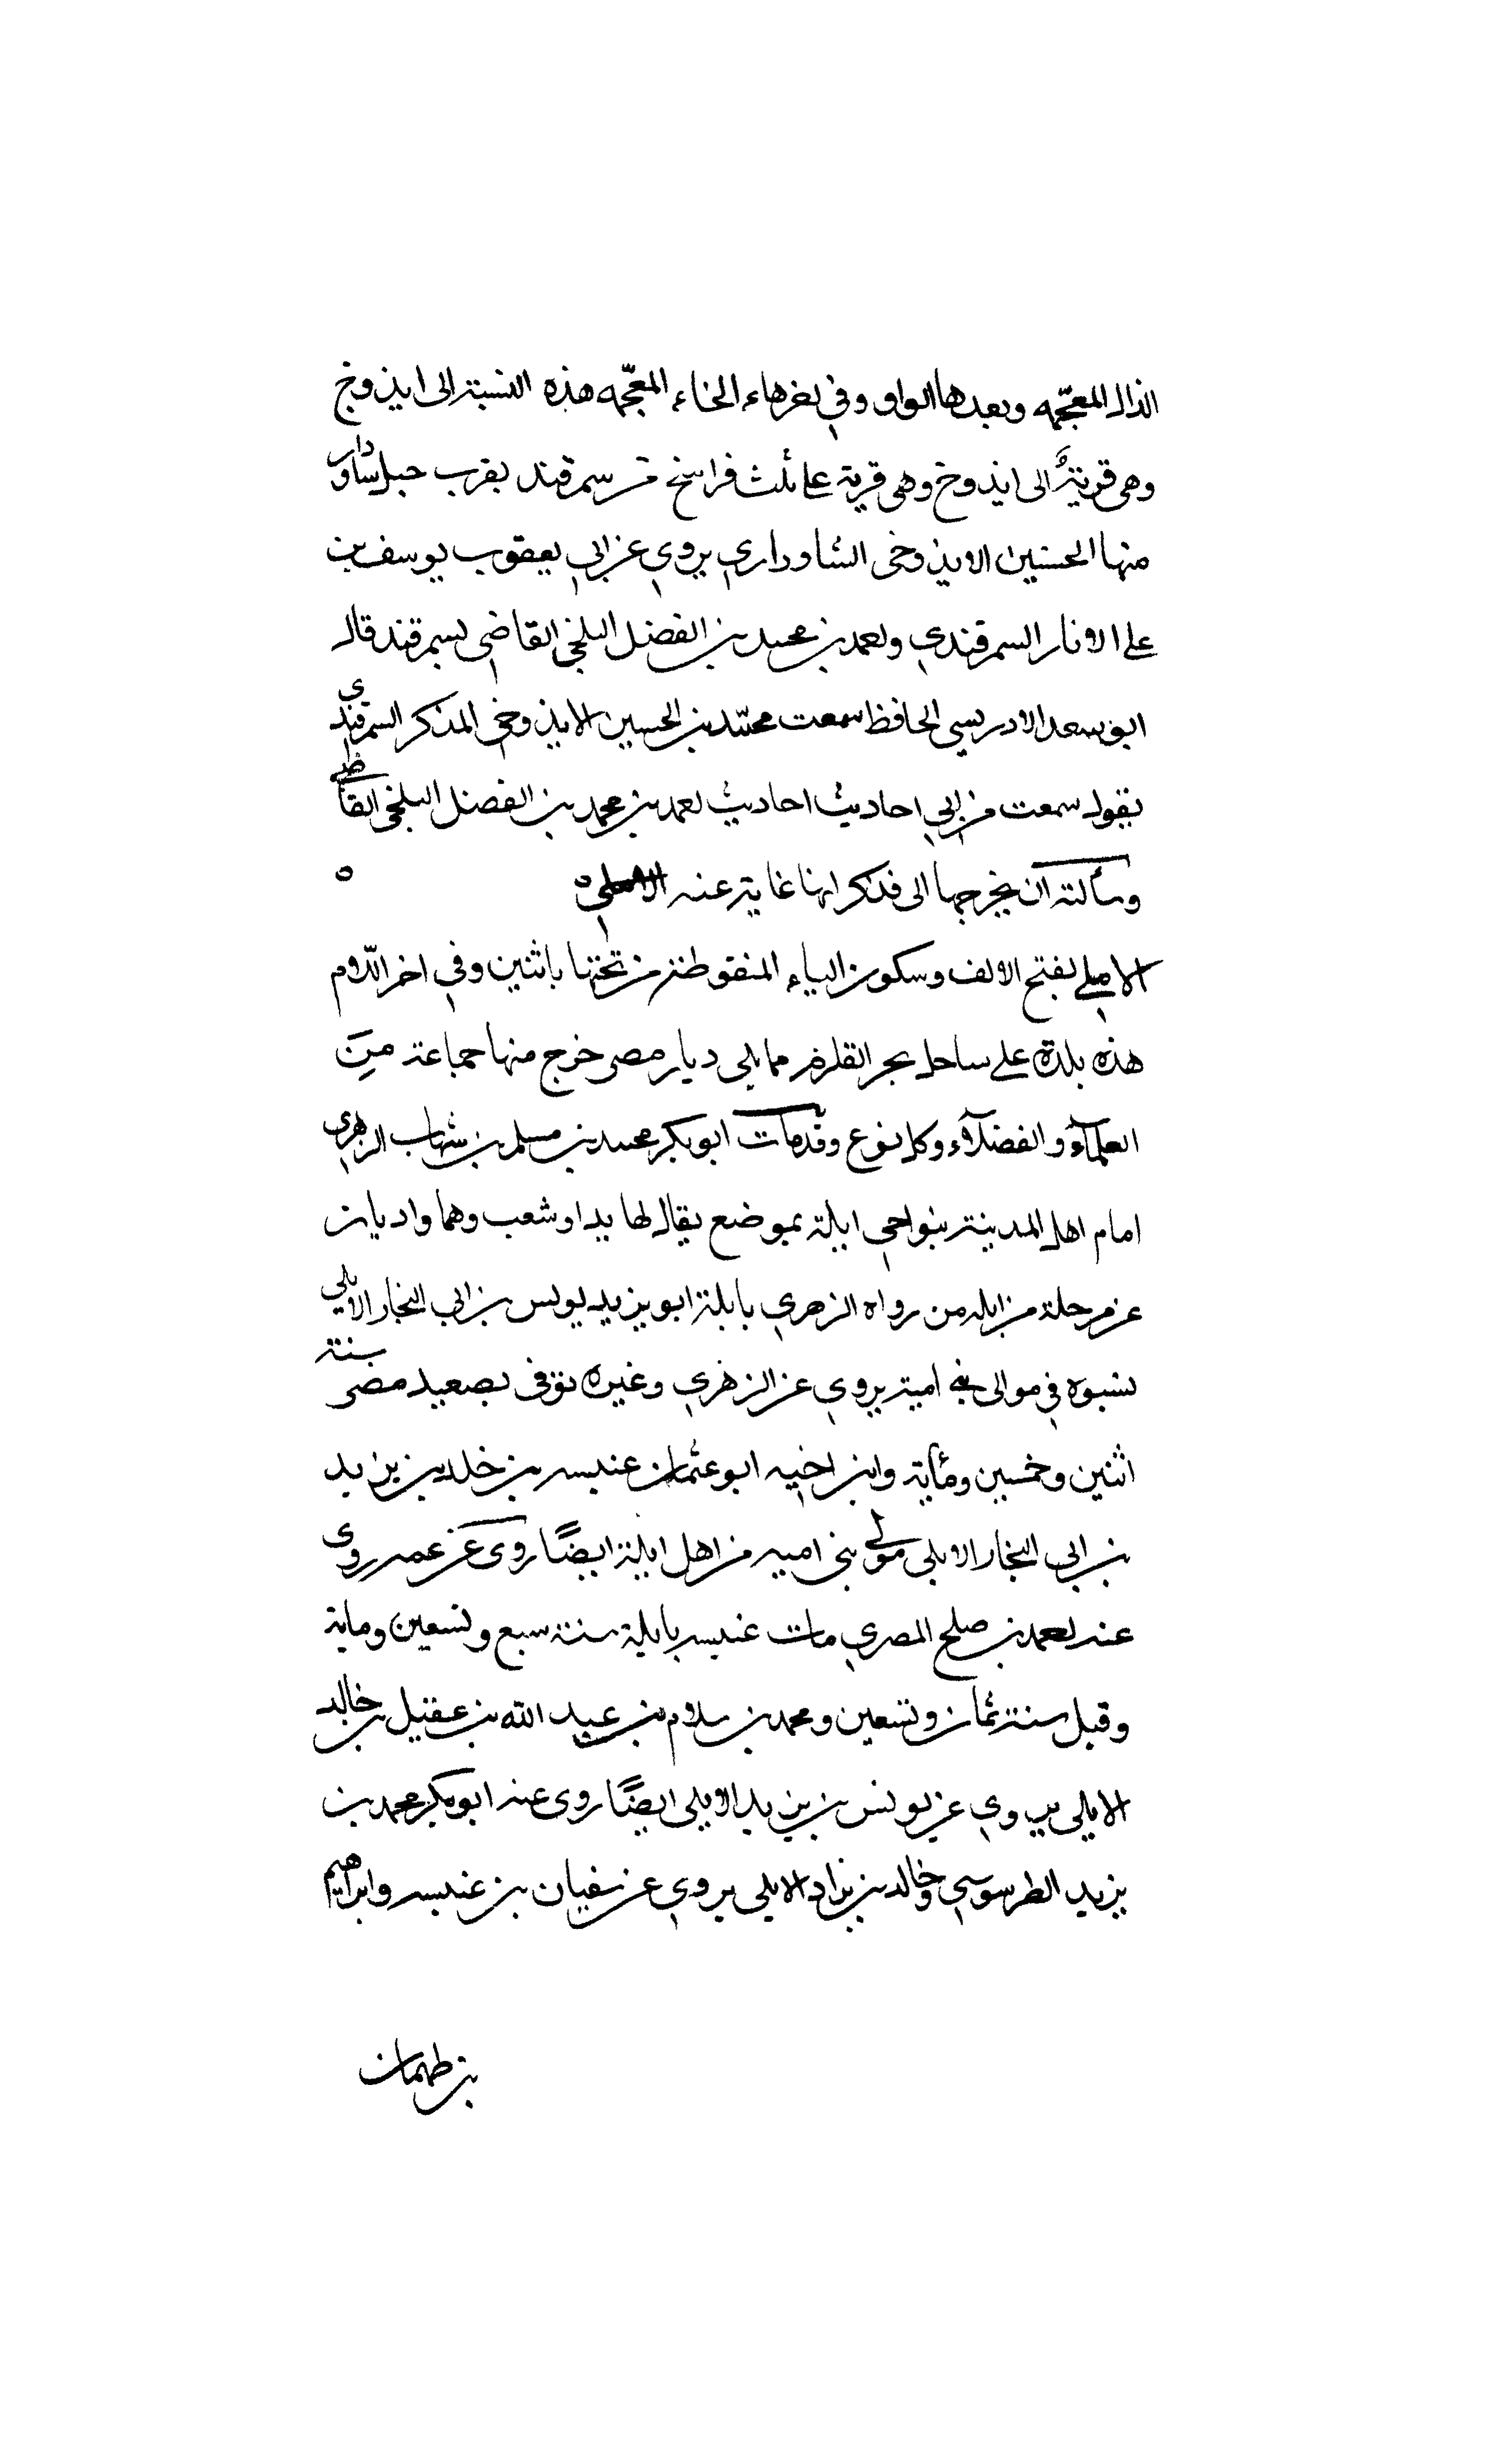 الذال المعجمه وبعدها الواو وفي اخرها الخاء المعجمه هذه النسبة الى ايذوخ
وهى قرية الى ايذوخ وهى قرية على ثلث فراسخ من سمرقند بقرب جبل ساودار
منها الحسين الايذوخى الشاوداري يروي عن ابي يعقوب يوسف بن
على الابار السمرقندي ولعمد بن محمد بن الفضل البلخي القاضي بسمرقند قال
ابو سعد الادريسي الحافظ سمعت محمد بن الحسين الايذوخي المذكر السمرقندي
يقول سمعت من ابي احاديث احاديث لعمد بن محمد بن الفضل البلخي القاضي
وسألته ان يخرجها الى فذكر انها غايبة عنه
الايلي بفتح الالف وسكون الياء المنقوطة من تحتها باثنين وفي اخر اللام
هذه بلدة على ساحل بحر القلزم مما يلي ديار مصر خرج منها جماعة من
العلماء والفضلاء وكل نوع وقد مات ابو بكر محمد بن مسلم بن شهاب الزهري
امام اهل المدينة بنواحي ايلة بموضع يقال لها بدا وشعب وهما واديان
عن مرحلة من ايله من رواه الزهري بايلة ابو يزيد يونس بن ابي النجار الايلي
نسبوه في موالى بني امية يروي عن الزهري وغيره توفى بصعيد مصر سنة
اثنين وخمسين ومأية وابن اخيه ابو عثمان عنبسه بن خلد بن يزيد
بن ابي النجار الايلي مولى بني اميه من اهل ايلة ايضًا روى عن عمه روى
عنه لعمد بن صلح المصري مات عنبسه بايلية سنة سبع وتسعين وماية
وقبل سنة ثمان وتسعين ومحمد بن سلام بن عبد الله بن عقيل بن خالد
الايلي يروي عن يونس بن يزيد الايلي ايضًا روى عنه ابو بكر محمد بن
يزيد الطرسوسي وخالد بن نزار الايلي يروي عن سفيان بن عنبسه وابراهيم
بن طهمان